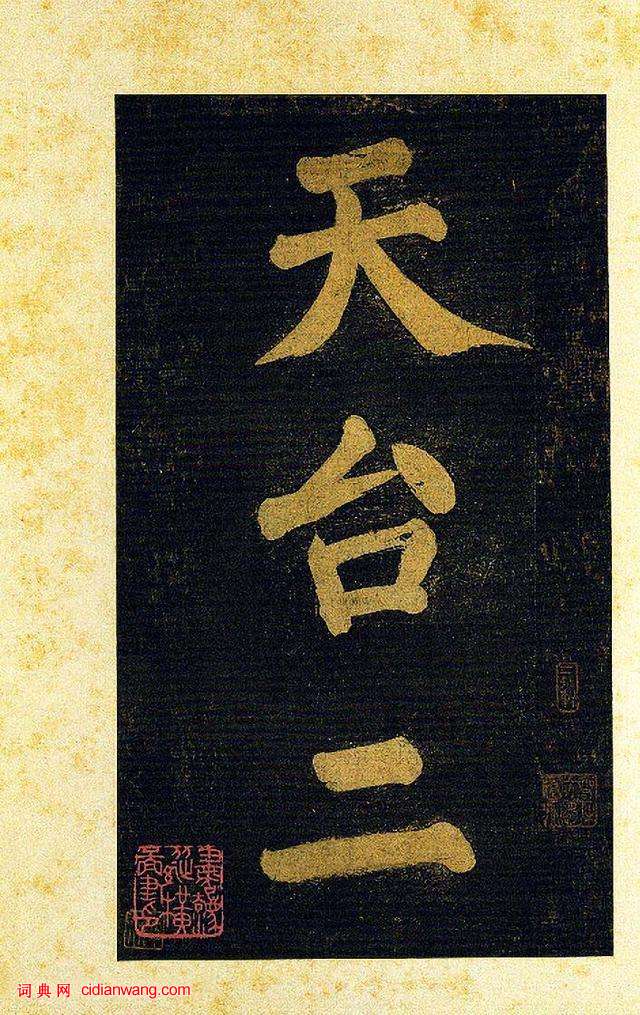 天台二
词典网 cidianwang.com